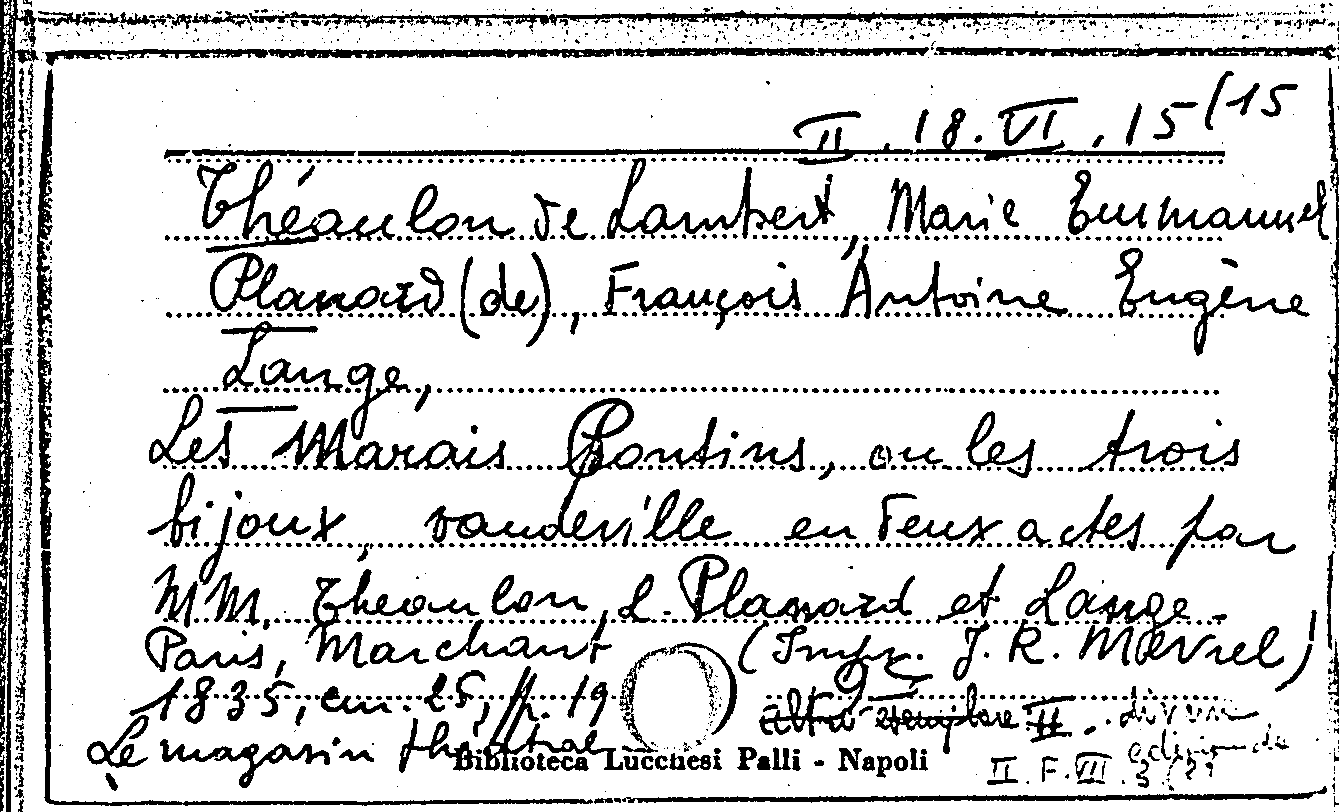 II. 18. VI. 15 (15
Théaulon de Lambert, Marie Emmanuel
Planard (de), François Antoine Eugène
Lange,
Les Marais Pontins, ou les trois
bijoux, vaudeville en deux actes par
MM. Théaulon, L. Planard et Lange.
Paris, Marchant (Impr. J. R. Mevrel)
1835, cm. 25, p. 19
altro esemplare II.
Le magasin théâtral
Biblioteca Lucchesi Palli - Napoli
II. F. VII. 3